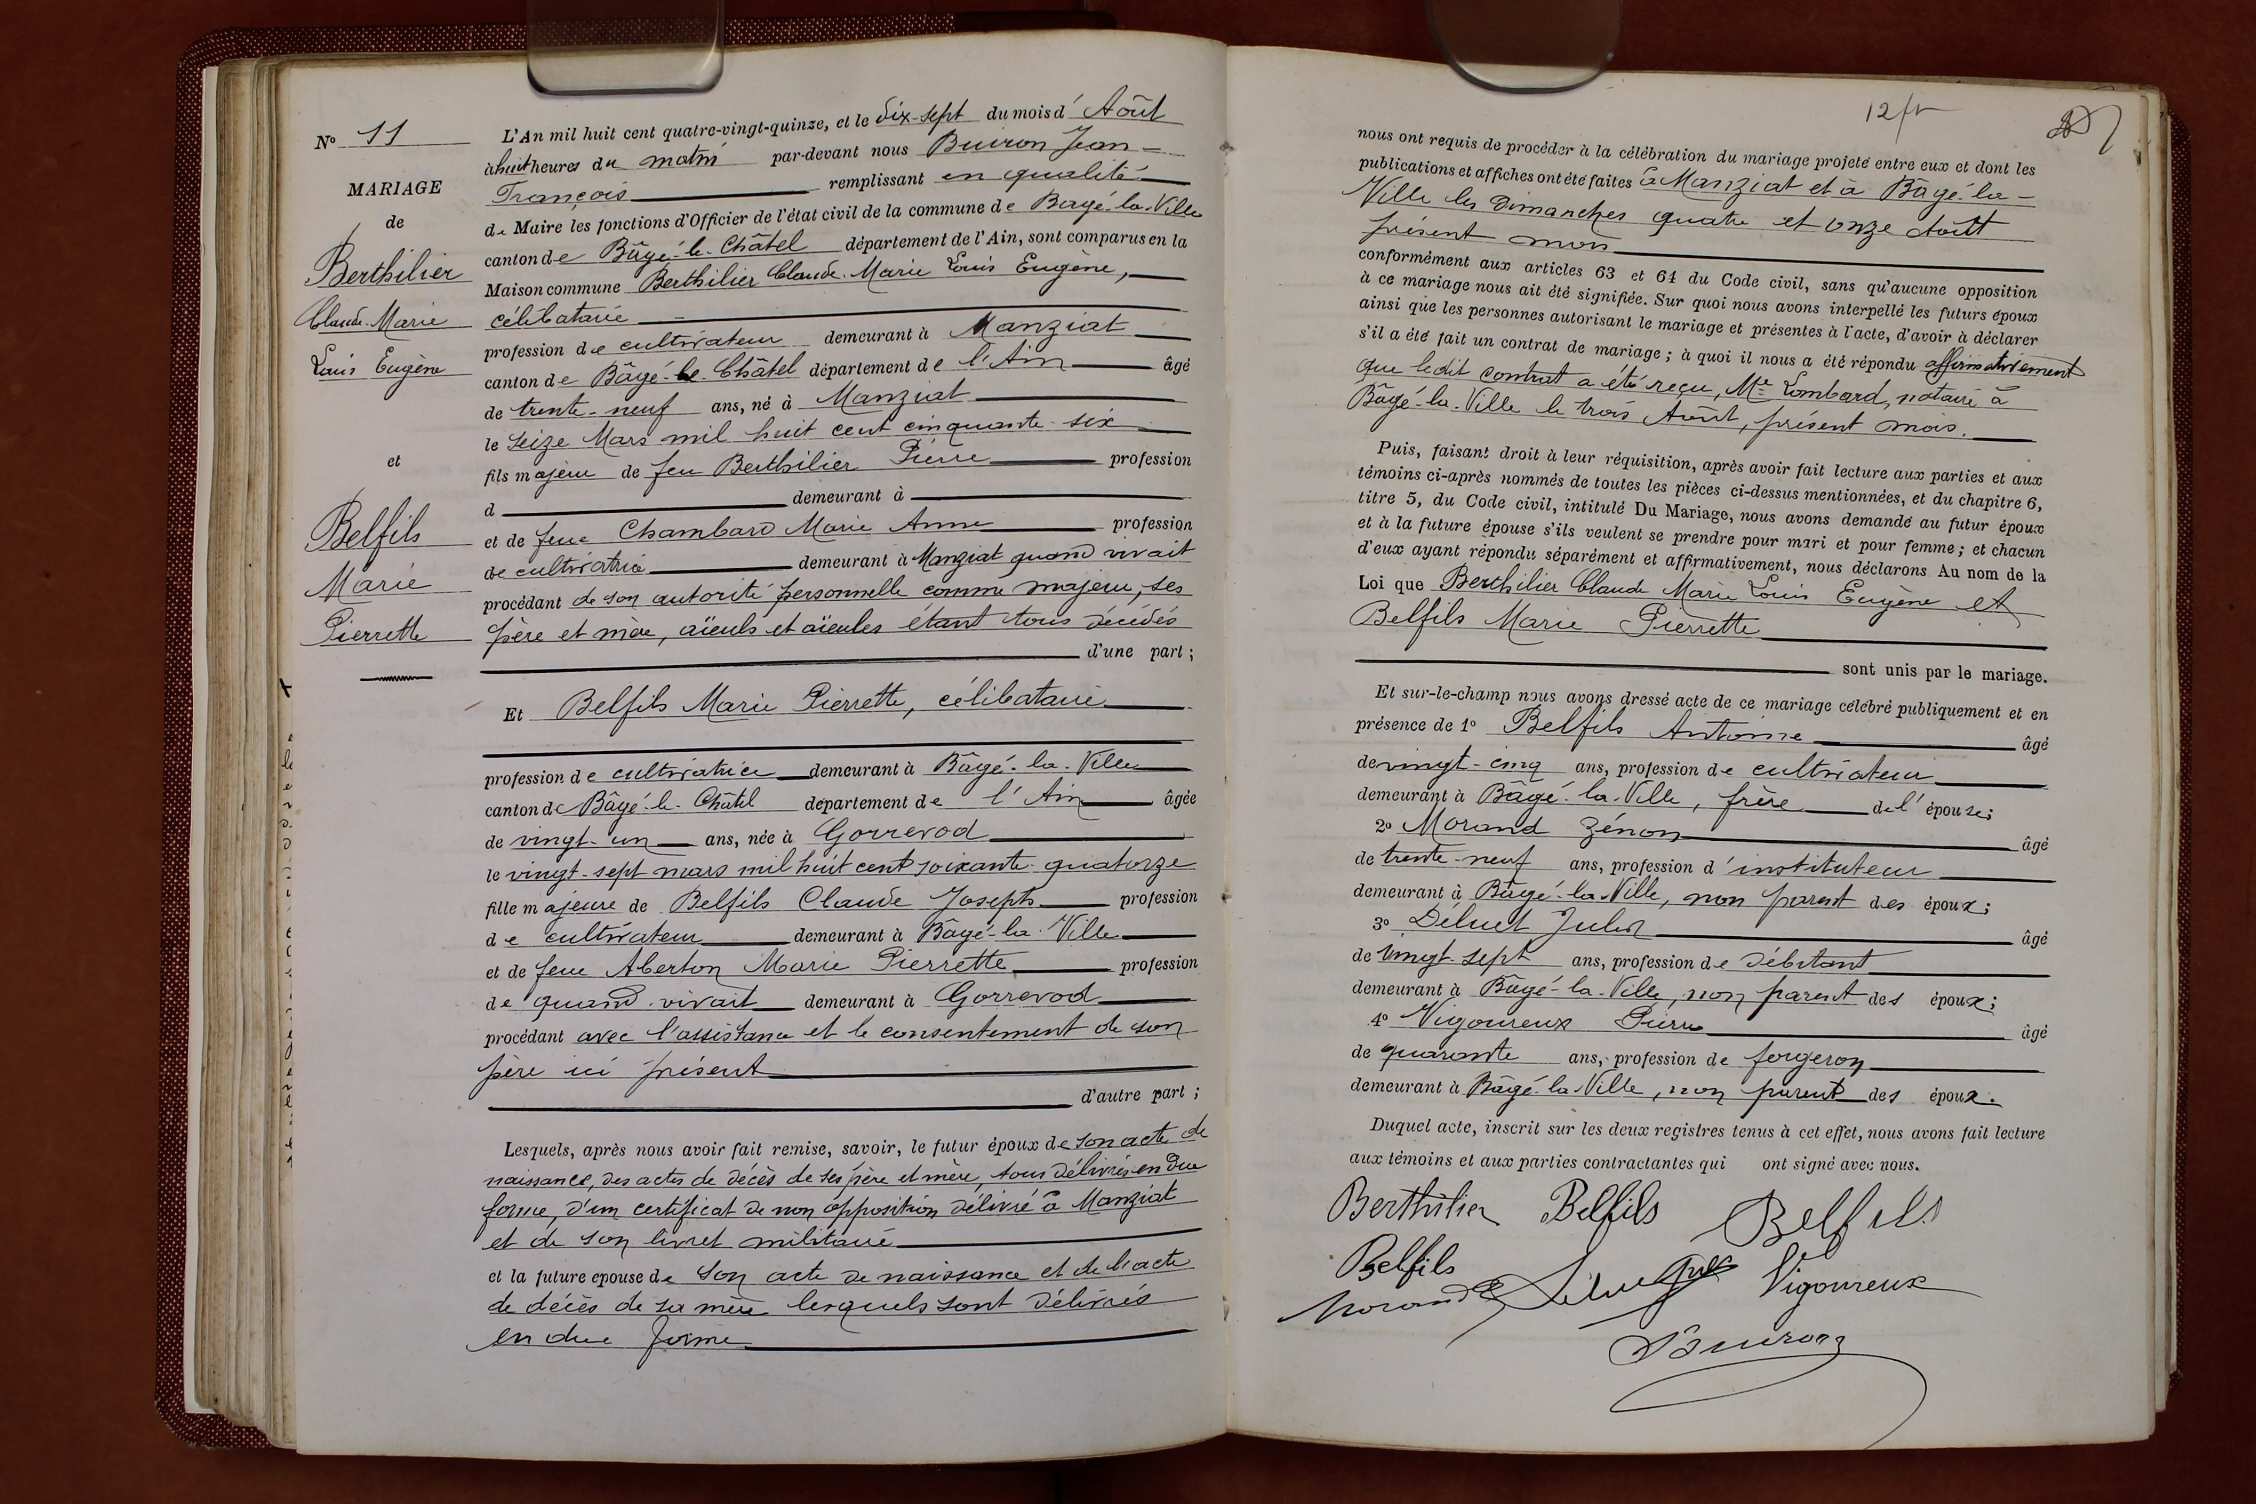 N° 11
MARIAGE
de
Berthilier
Claude-Marie
Louis Eugène
et
Belfils
Marie
Pierrette
L'An mil huit cent quatre-vingt-quinze, et le dix-sept du mois d' Août
à huit heures du matin par-devant nous Buiron Jean-
François remplissant en qualité
de Maire les fonctions d'Officier de l'état civil de la commune de Bagé-la-Ville
canton de Bâgé-le-Châtel département de l'Ain, sont comparus en la
Maison commune Berthilier Claude-Marie Louis Eugène,
célibataire
profession de cultivateur demeurant à Manziat
canton de Bâgé-le-Châtel département de l'Ain âgé
de trente-neuf ans, né à Manziat
le seize Mars mil huit cent cinquante-six
fils majeur de feu Berthilier Pierre profession
d demeurant à
et de feue Chambard Marie Anne profession
de cultivatrice demeurant à Manziat quand vivait
procédant de son autorité personnelle comme majeur, ses
père et mère, aïeuls et aïeules étant tous décédés
d'une part ;
Et Belfils Marie Pierrette, célibataire
profession de cultivatrice demeurant à Bâgé-la-Ville
canton de Bâgé-le-Châtel département de l'Ain âgée
de vingt-un ans, née à Gorrevod
le vingt-sept mars mil huit cent soixante-quatorze
fille majeure de Belfils Claude Joseph profession
de cultivateur demeurant à Bâgé-la-Ville
et de feue Aberton Marie Pierrette profession
de quand vivait demeurant à Gorrevod
procédant avec l'assistance et le consentement de son
père ici présent
d'autre part ;
Lesquels, après nous avoir fait remise, savoir, le futur époux de son acte de
naissance, des actes de décès de ses père et mère, tous délivrés en due
forme, d'un certificat de non opposition délivré à Manziat
et de son livret militaire
et la future epouse de son acte de naissance et de l'acte
de décès de sa mère lesquels sont délivrés
en due forme
12 ft
nous ont requis de procéder à la célébration du mariage projeté entre eux et dont les
publications et affiches ont été faites à Manziat et à Bâgé-la-
Ville les Dimanches quatre et onze Août
présent mois
conformément aux articles 63 et 64 du Code civil, sans qu'aucune opposition
à ce mariage nous ait été signifiée. Sur quoi nous avons interpellé les futurs époux
ainsi que les personnes autorisant le mariage et présentes à l'acte, d'avoir à déclarer
s'il a été fait un contrat de mariage ; à quoi il nous a été répondu affirmativement
que ledit contrat a été reçu, Me Lombard, notaire à
Bâgé-la-Ville le trois Août, présent mois.
Puis, faisant droit à leur réquisition, après avoir fait lecture aux parties et aux
témoins ci-après nommés de toutes les pièces ci-dessus mentionnées, et du chapitre 6,
titre 5, du Code civil, intitulé Du Mariage, nous avons demandé au futur époux
et à la future épouse s'ils veulent se prendre pour mari et pour femme ; et chacun
d'eux ayant répondu séparément et affirmativement, nous déclarons Au nom de la
Loi que Berthilier Claude Marie Louis Eugène et
Belfils Marie Pierrette
sont unis par le mariage.
Et sur-le-champ nous avons dressé acte de ce mariage célébré publiquement et en
présence de 1° Belfils Antoine âgé
de vingt-cinq ans, profession de cultivateur
demeurant à Bâgé-la-Ville, frère de l'épouse ;
2° Morand Zénon âgé
de trente-neuf ans, profession d'instituteur
demeurant à Bâgé-la-Ville, non parent des époux ;
3° Deluet Jules âgé
de vingt-sept ans, profession de débitant
demeurant à Bâgé-la-Ville, non parent des époux ;
4° Vigoureux Pierre âgé
de quarante ans, profession de forgeron
demeurant à Bâgé-la-Ville, non parent des époux.
Duquel acte, inscrit sur les deux registres tenus à cet effet, nous avons fait lecture
aux témoins et aux parties contractantes qui ont signé avec nous.
Berthilier Belfils Belfils
Belfils
Morand Vigoureux
Buiron